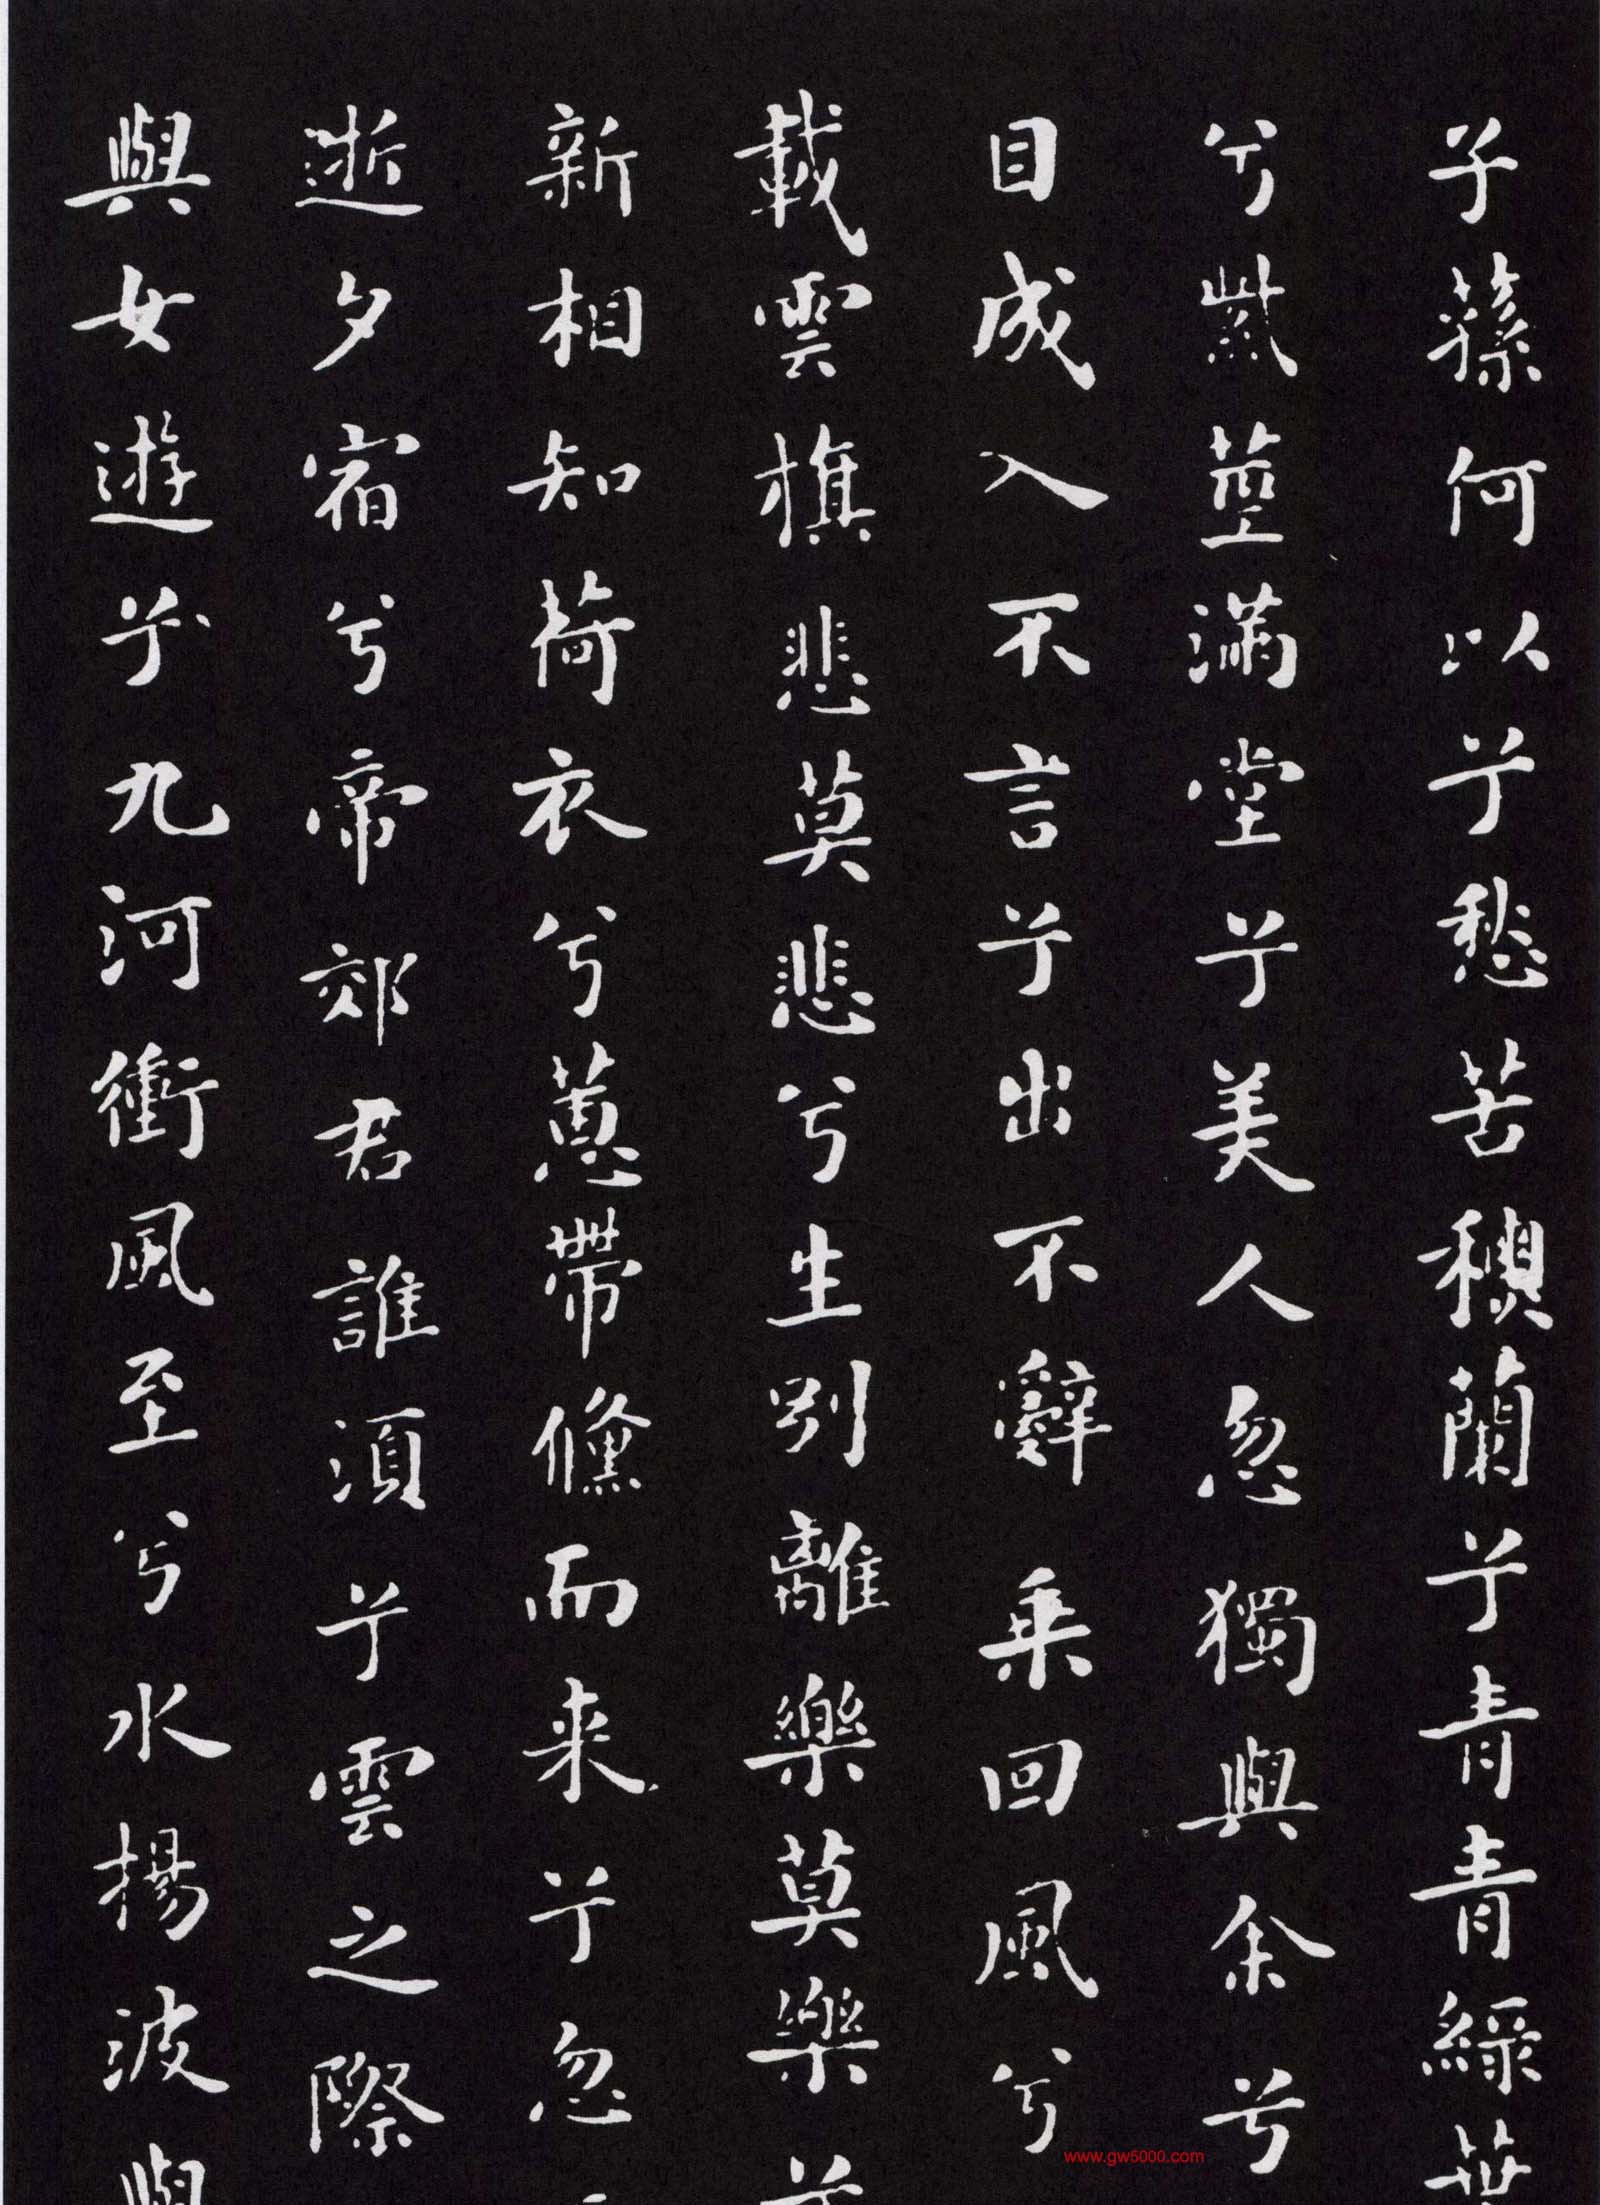 子蓀何以兮愁苦穐蘭兮青青綠葉
兮紫莖滿堂兮美人忽獨與余兮
目成入不言兮出不辭乘回風兮
載雲旗悲莫悲兮生別離樂莫樂兮
新相知荷衣兮蕙帶儵而来兮忽
逝夕宿兮帝郊君誰須兮雲之際
與女遊兮九河衝風至兮水揚波與
www.gw5000.com